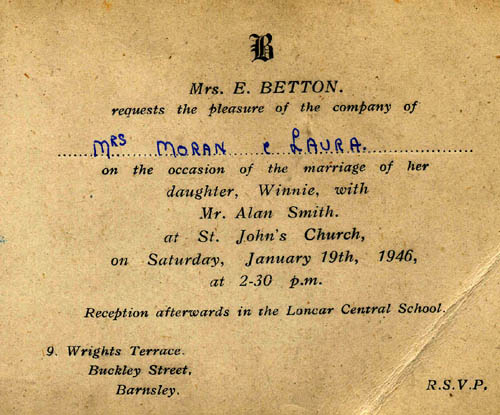 B
Mrs. E. BETTON.
requests the pleasure of the company of
MRS MORAN & LAURA.
on the occasion of the marriage of her
daughter, Winnie, with
Mr. Alan Smith.
at St. John's Church,
on Saturday, January 19th, 1946,
at 2-30 p.m.
Reception afterwards in the Loncar Central School.
9. Wrights Terrace.
Buckley Street,
Barnsley.
R.S.V.P.